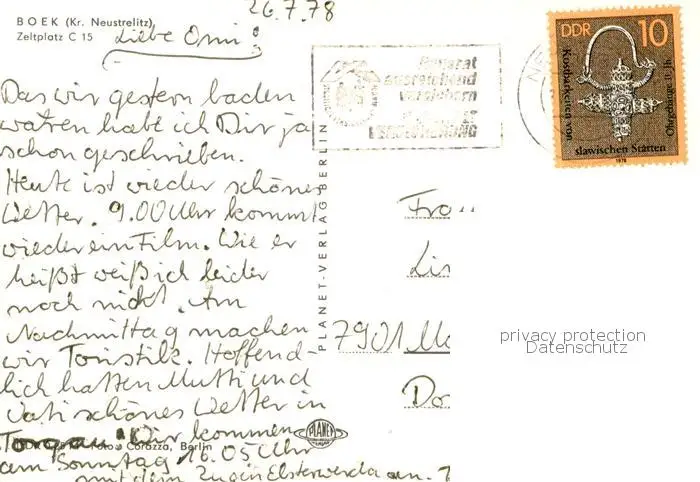 26.7.78
BOEK (Kr. Neustrelitz)
Zeltplatz C 15
Liebe Omi!
Das wir gestern baden
waren habe ich Dir ja
schon geschrieben.
Heute ist wieder schönes
Wetter. 9.00 Uhr kommt
wieder ein Film. Wie er
heißt weiß ich leider
noch nicht. Am
Nachmittag machen
wir Touristik. Hoffend-
lich hatten Mutti und
Vati schönes Wetter in
Torgau. Wir kommen
am Sonntag 16.05 Uhr
mit dem Zug in Elsterwerda an.
Foto: Corazza, Berlin
PLANET-VERLAG BERLIN
PLANET
ausreichend
versichern
VERSICHERUNG
DDR 10
Kostbarkeiten von
slawischen Stätten
Ohrgehänge 11. Jh.
1978
Frau
7901
privacy protection
Datenschutz